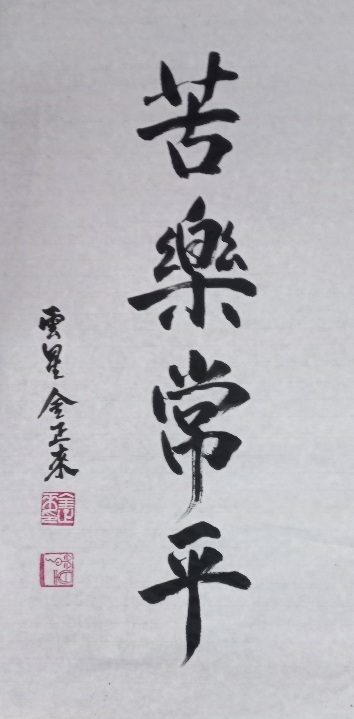 苦樂常平
雲星 金正來